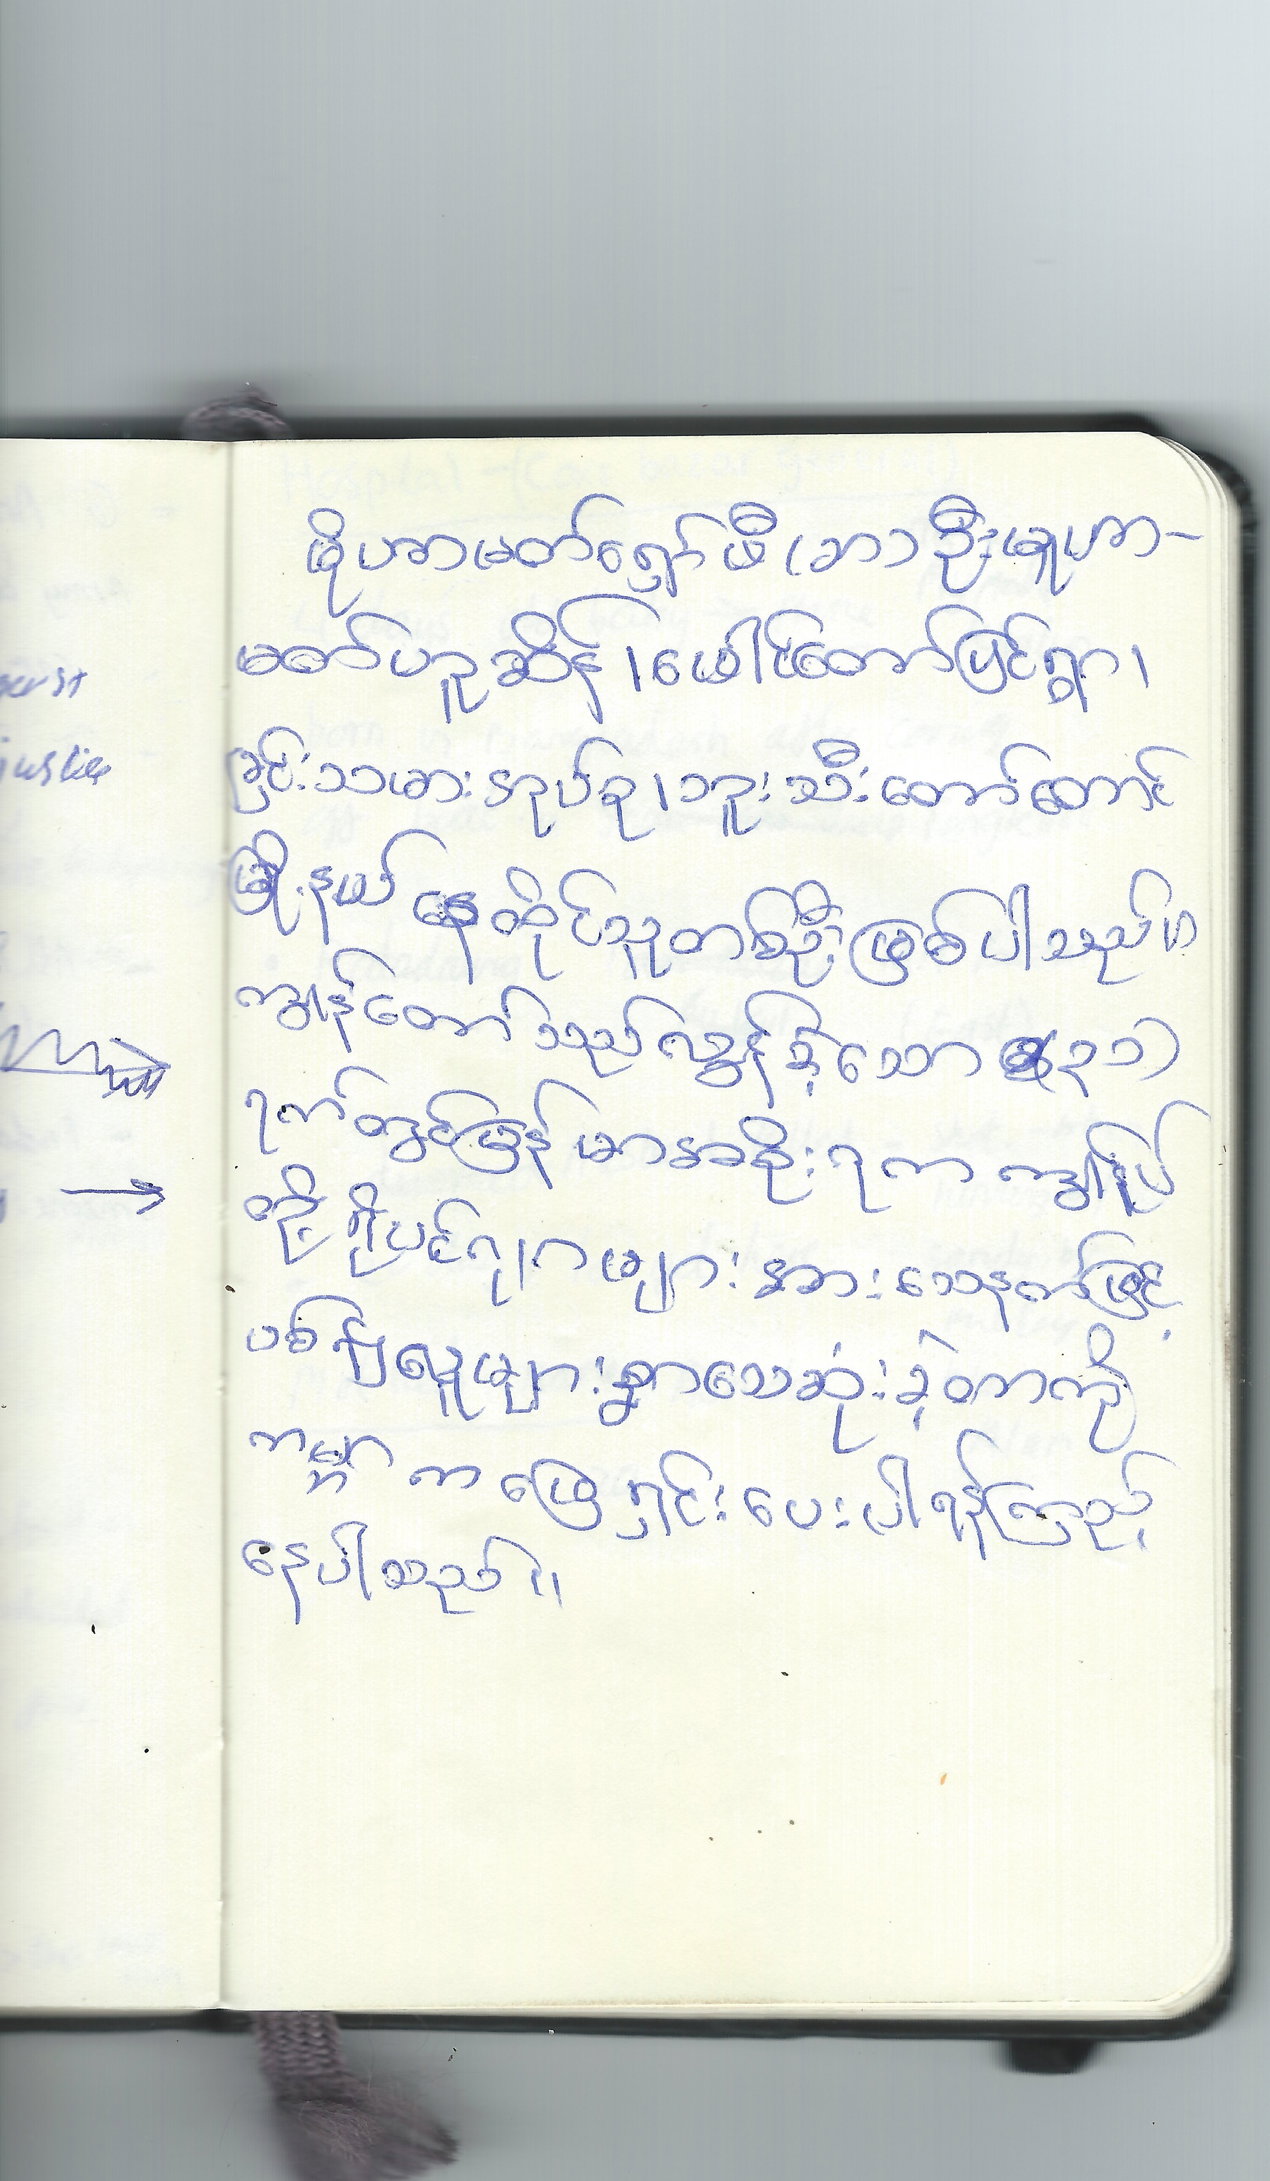 မိုဟာမတ်ရှော်ဖီ (ဘ) ဦးမူဟာ-
မတော်ဟူဆိန်၊ ပေါင်တော်ပြင်ရွာ၊
ခြင်းသမား အုပ်စု၊ ဘူးသီးတောင်
မြို့နယ် နေထိုင်သူတစ်ဦးဖြစ်ပါသည်။
ကျွန်တော်သည် လွန်ခဲ့သော (၃၁)
ရက်တွင် မြန်မာအစိုးရက ကျွန်ုပ်
တို့ ရိုဟင်ဂျာများအား သေနတ်ဖြင့်
ပစ်၍ လူများစွာသေဆုံးခဲ့တာကို
ကမ္ဘာက ဖြေရှင်းပေးပါရန်ကြည့်
နေပါသည်။
gerst
justice